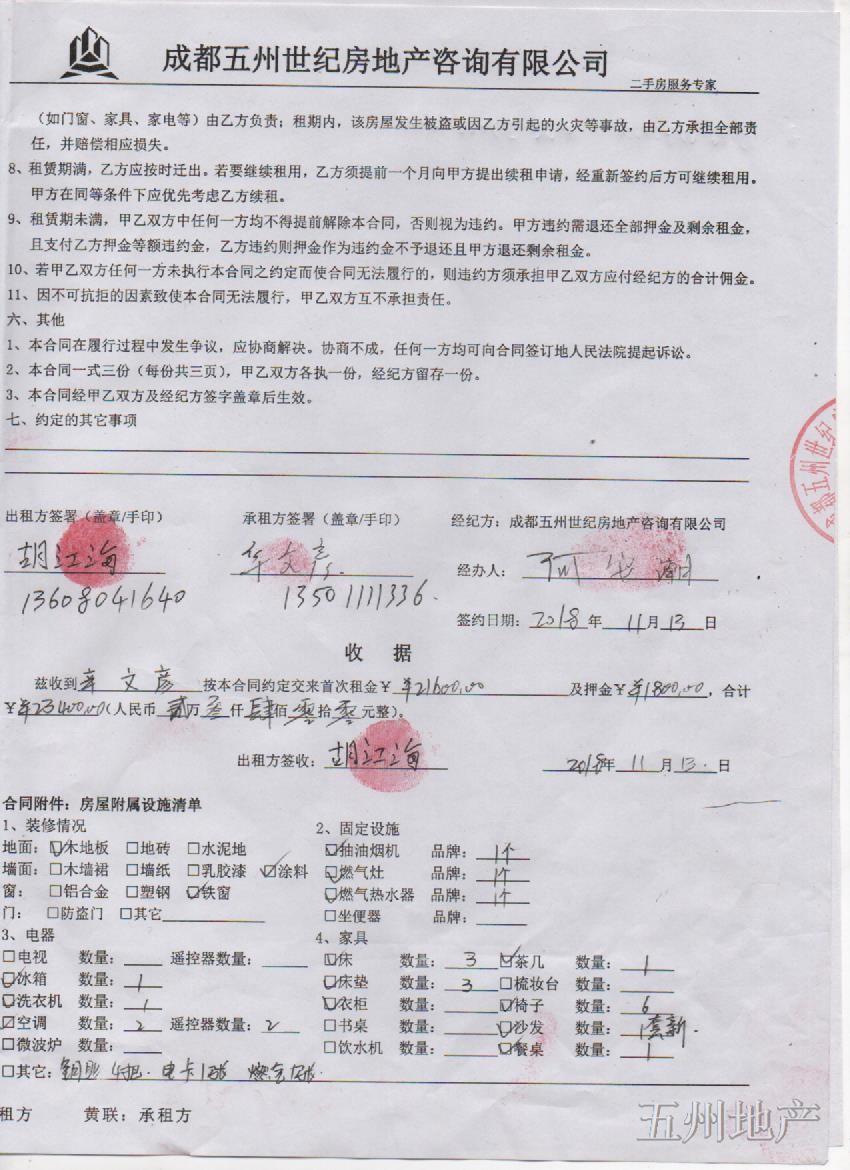 成都五州世纪房地产咨询有限公司
二手房服务专家
（如门窗、家具、家电等）由乙方负责；租期内，该房屋发生被盗或因乙方引起的火灾等事故，由乙方承担全部责
任，并赔偿相应损失。
8、租赁期满，乙方应按时迁出。若要继续租用，乙方须提前一个月向甲方提出续租申请，经重新签约后方可继续租用。
甲方在同等条件下应优先考虑乙方续租。
9、租赁期未满，甲乙双方中任何一方均不得提前解除本合同，否则视为违约。甲方违约需退还全部押金及剩余租金，
且支付乙方押金等额违约金，乙方违约则押金作为违约金不予退还且甲方退还剩余租金。
10、若甲乙双方任何一方未执行本合同之约定而使合同无法履行的，则违约方须承担甲乙双方应付经纪方的合计佣金。
11、因不可抗拒的因素致使本合同无法履行，甲乙双方互不承担责任。
六、其他
1、本合同在履行过程中发生争议，应协商解决。协商不成，任何一方均可向合同签订地人民法院提起诉讼。
2、本合同一式三份（每份共三页），甲乙双方各执一份，经纪方留存一份。
3、本合同经甲乙双方及经纪方签字盖章后生效。
七、约定的其它事项
五州世纪
出租方签署（盖章/手印） 承租方签署（盖章/手印） 经纪方：成都五州世纪房地产咨询有限公司
胡江海 华文彦 经办人：
13608041640 13501111336. 签约日期：2018年 11月13日
收 据
兹收到 华文彦 按本合同约定交来首次租金￥ ￥21600.00 及押金￥ ￥1800.00，合计
￥ ￥23400.00（人民币 贰万 叁仟 肆佰 零拾 零元整）。
出租方签收：胡江海 2018年 11月13.日
合同附件：房屋附属设施清单
1、装修情况 2、固定设施
地面：☑木地板 □地砖 □水泥地 ☑抽油烟机 品牌：1个
墙面：□木墙裙 □墙纸 □乳胶漆 ☑涂料 ☑燃气灶 品牌：1个
窗： □铝合金 □塑钢 ☑铁窗 ☑燃气热水器 品牌：1个
门： □防盗门 □其它 □坐便器 品牌：
3、电器 4、家具
□电视 数量： 遥控器数量： ☑床 数量：3 ☑茶几 数量：1
☑冰箱 数量：1 ☑床垫 数量：3 □梳妆台 数量：
☑洗衣机 数量：1 ☑衣柜 数量： ☑椅子 数量：6
☑空调 数量：2 遥控器数量：2 □书桌 数量： ☑沙发 数量：1套新.
□微波炉 数量： □饮水机 数量： ☑餐桌 数量：1
□其它：钥匙 电卡1张
租方 黄联：承租方
五州地产